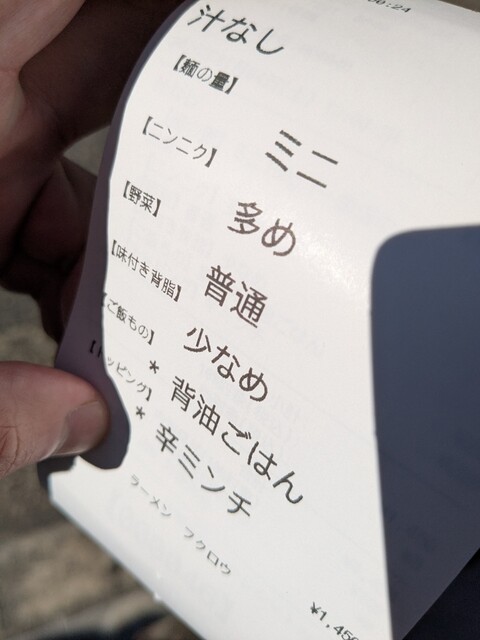 汁なし
【麺の量】
ミニ
【ニンニク】
多め
【野菜】
普通
【味付き背脂】
少なめ
【ご飯もの】
* 背油ごはん
【トッピング】
* 辛ミンチ
ラーメン フクロウ